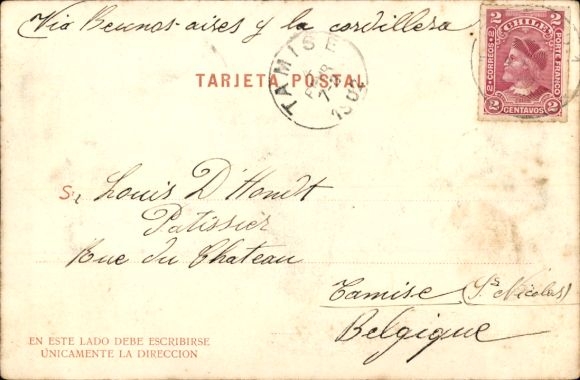 Via Buenos-aires y la cordillera
TARJETA POSTAL
TAMISE
2 CHILE 2
CORREOS
PORTE FRANCO
2 CENTAVOS 2
Sr. Louis D'Hondt
Patissier
Rue du Chateau
Tamise (St Nicolas)
Belgique
EN ESTE LADO DEBE ESCRIBIRSE
ÚNICAMENTE LA DIRECCION